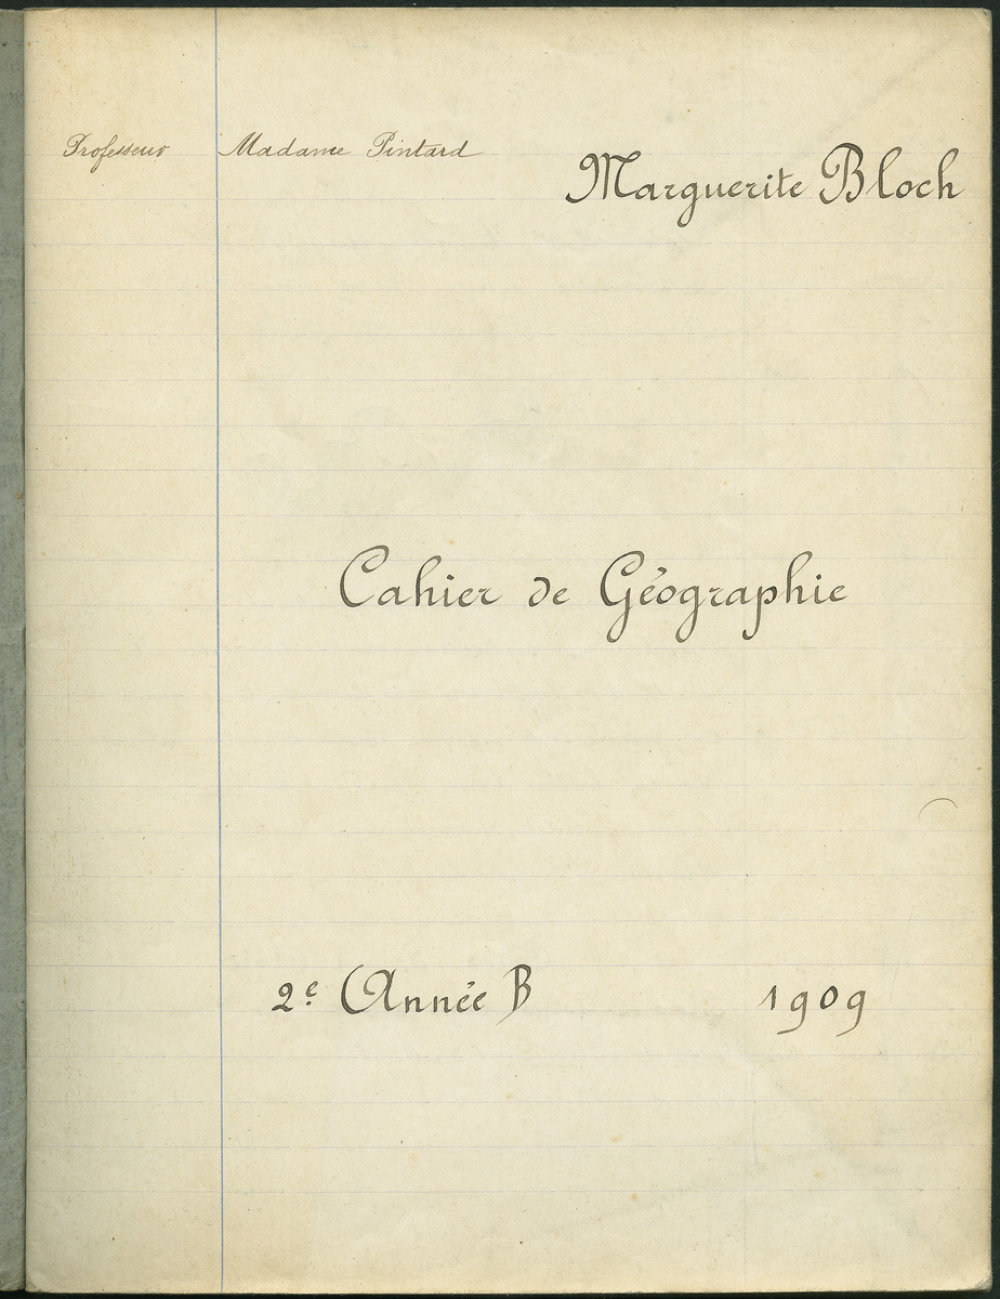 Professeur Madame Pintard
Marguerite Bloch
Cahier de Géographie
2e Année B 1909